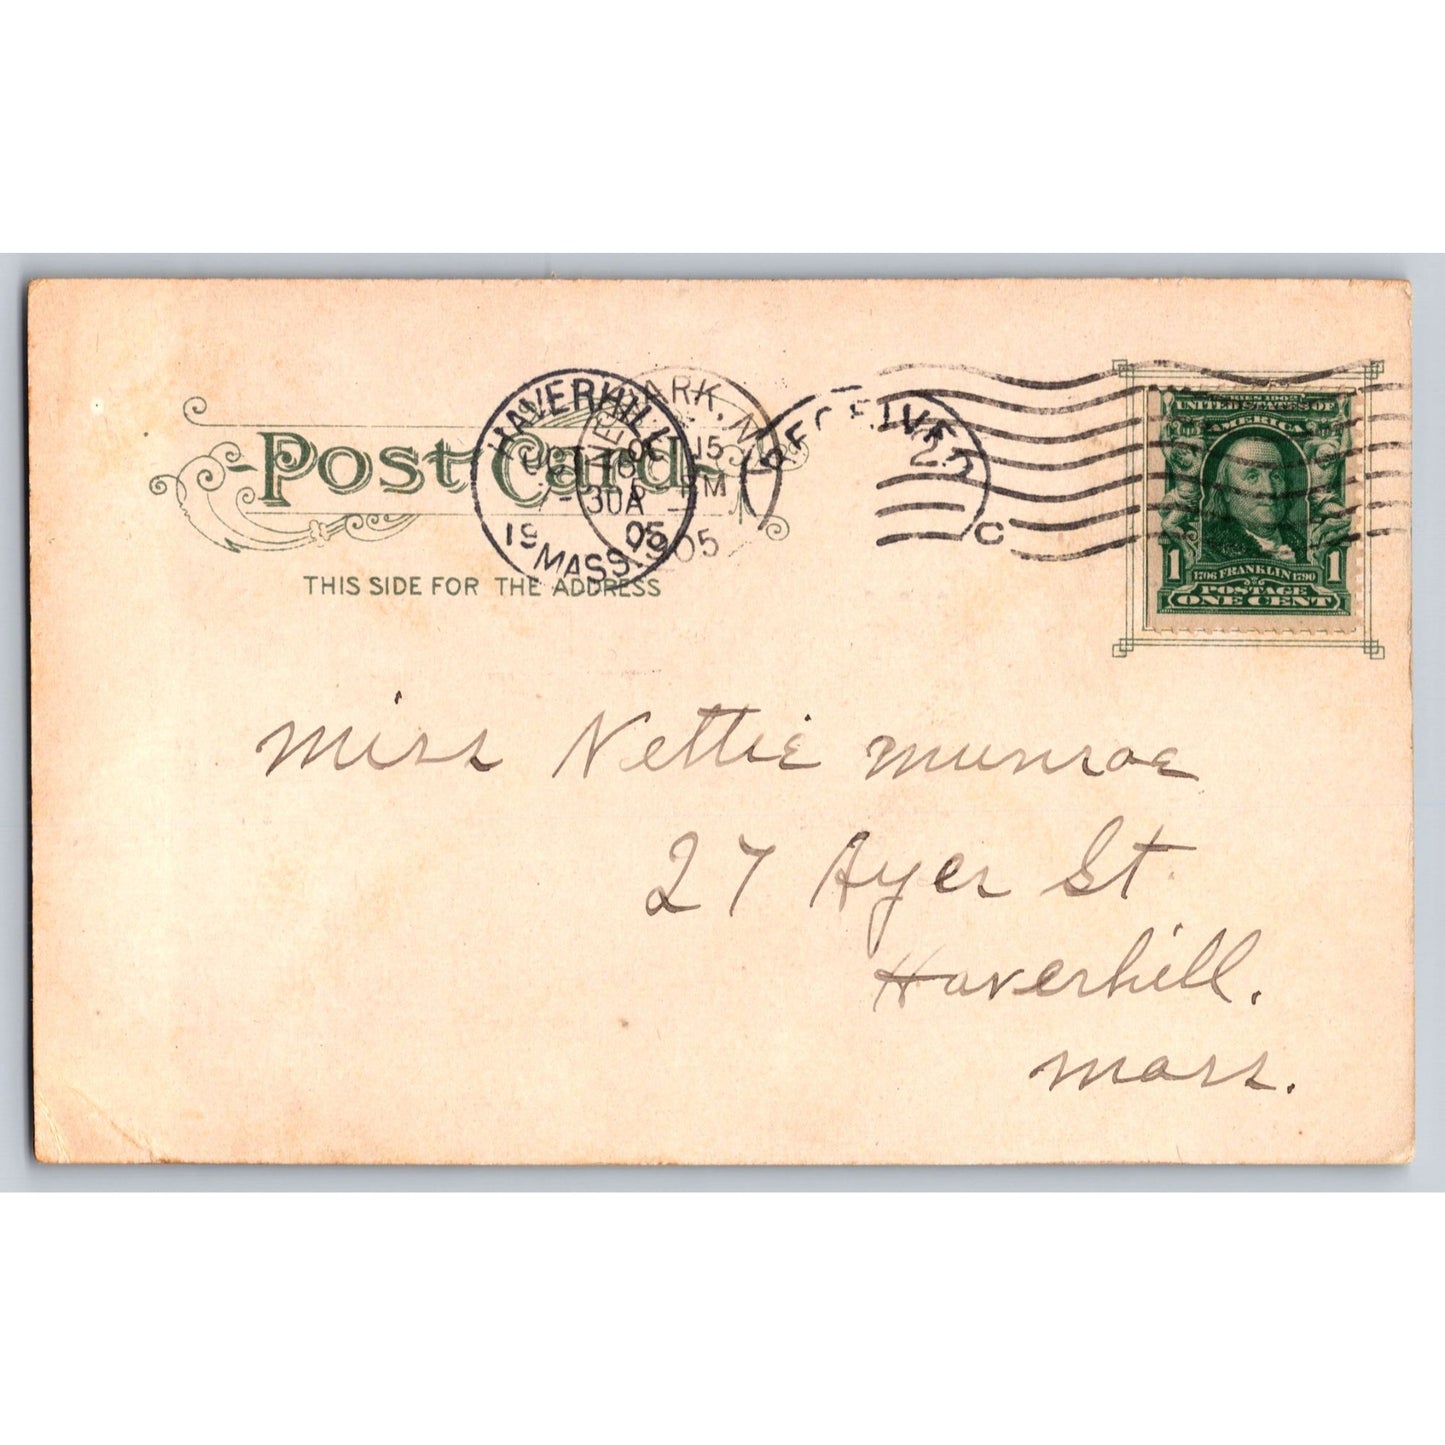 HAVERHILL
OCT 16
7-30A
19 05
MASS.
NEWARK, N.J.
OCT 15
PM
1905
RECEIVED
2
C
Post Card
THIS SIDE FOR THE ADDRESS
SERIES 1902
UNITED STATES OF
AMERICA
1 1706 FRANKLIN 1790 1
POSTAGE
ONE CENT
Miss Nettie Munroe
27 Ayer St
Haverhill.
Mass.